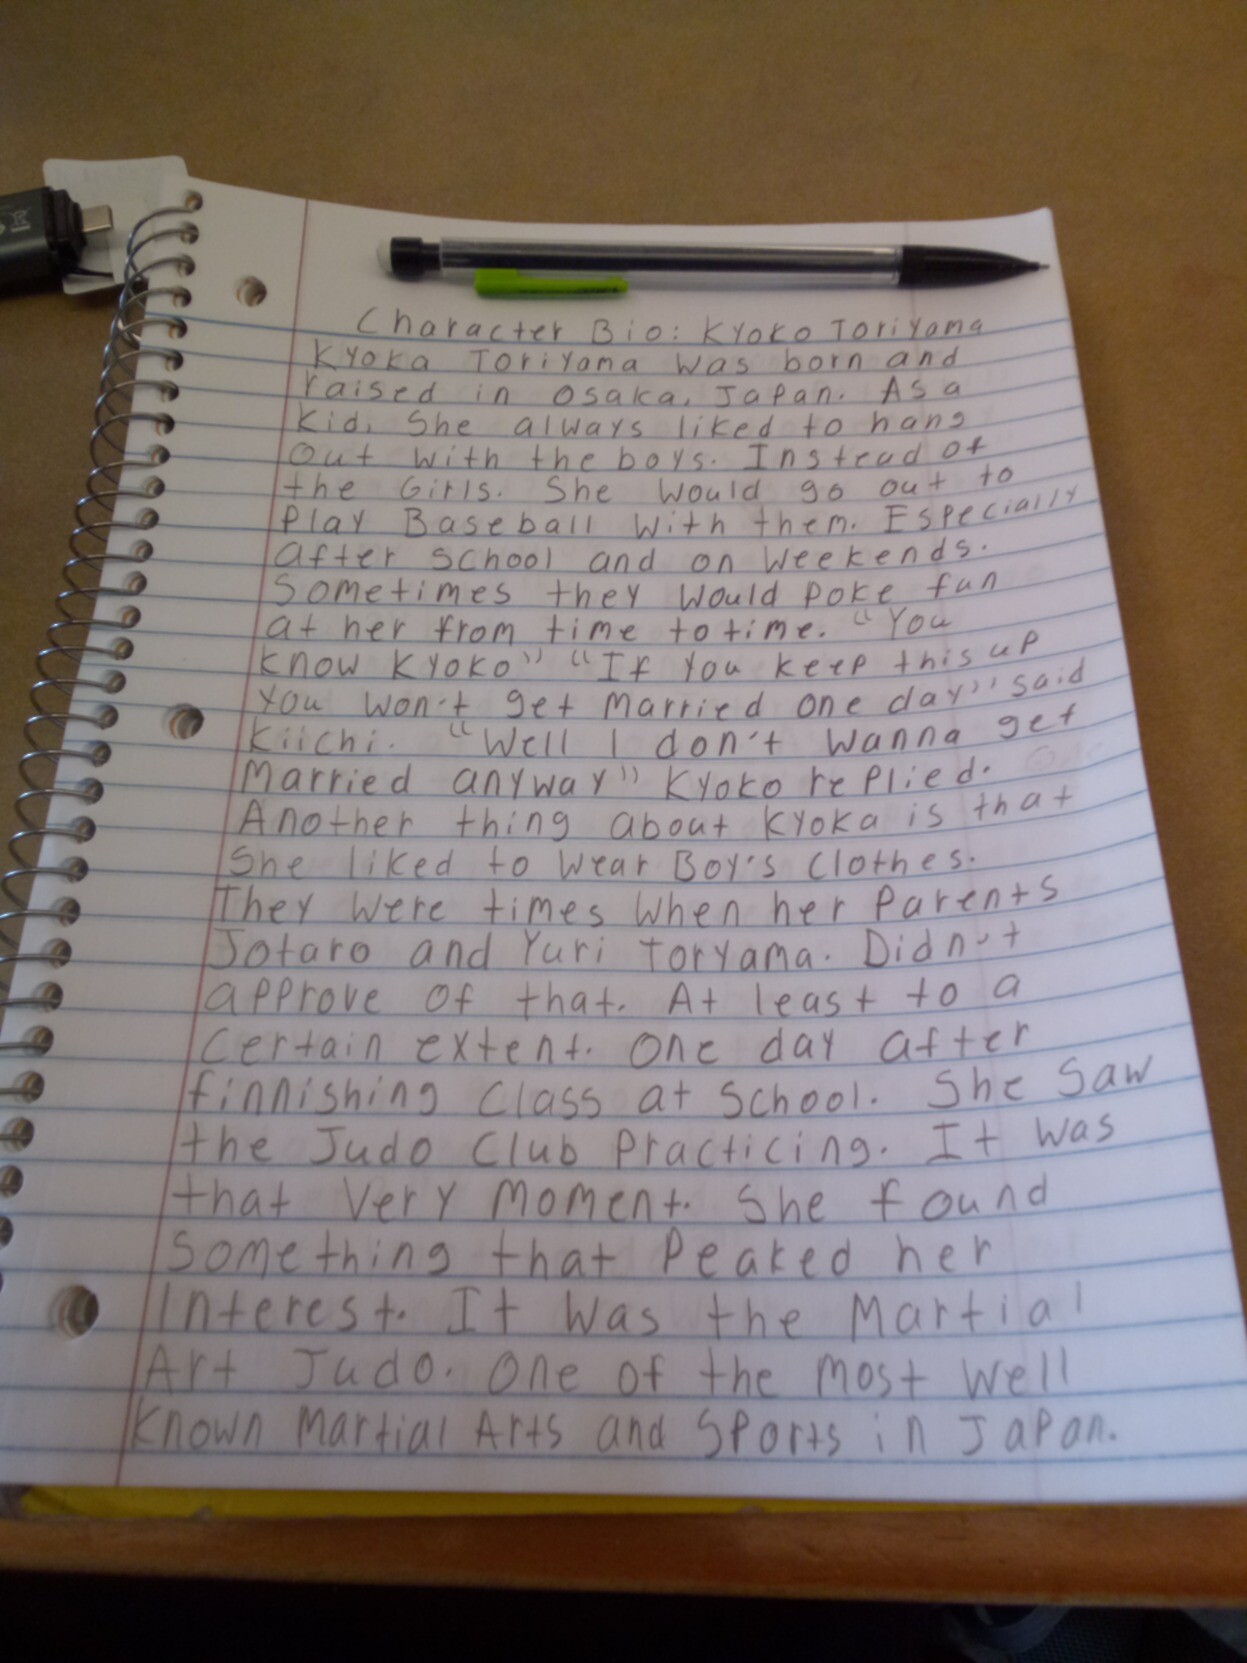 Character Bio: Kyoko Toriyama
Kyoka Toriyama was born and
raised in Osaka, Japan. As a
kid. She always liked to hang
out with the boys. Instead of
the Girls. She would go out to
Play Baseball with them. Especially
after school and on weekends.
Sometimes they would poke fun
at her from time to time. "You
know Kyoko" "If you keep this up
you won't get married one day" said
Kiichi. "Well I don't wanna get
Married anyway" Kyoko replied.
Another thing about Kyoka is that
She liked to wear Boy's clothes.
They were times when her Parents
Jotaro and Yuri Toryama. Didn't
approve of that. At least to a
certain extent. One day after
finnishing class at school. She saw
the Judo Club Practicing. It was
that very moment. She found
something that Peaked her
interest. It was the Martial
Art Judo. One of the most well
known Martial Arts and Sports in Japan.